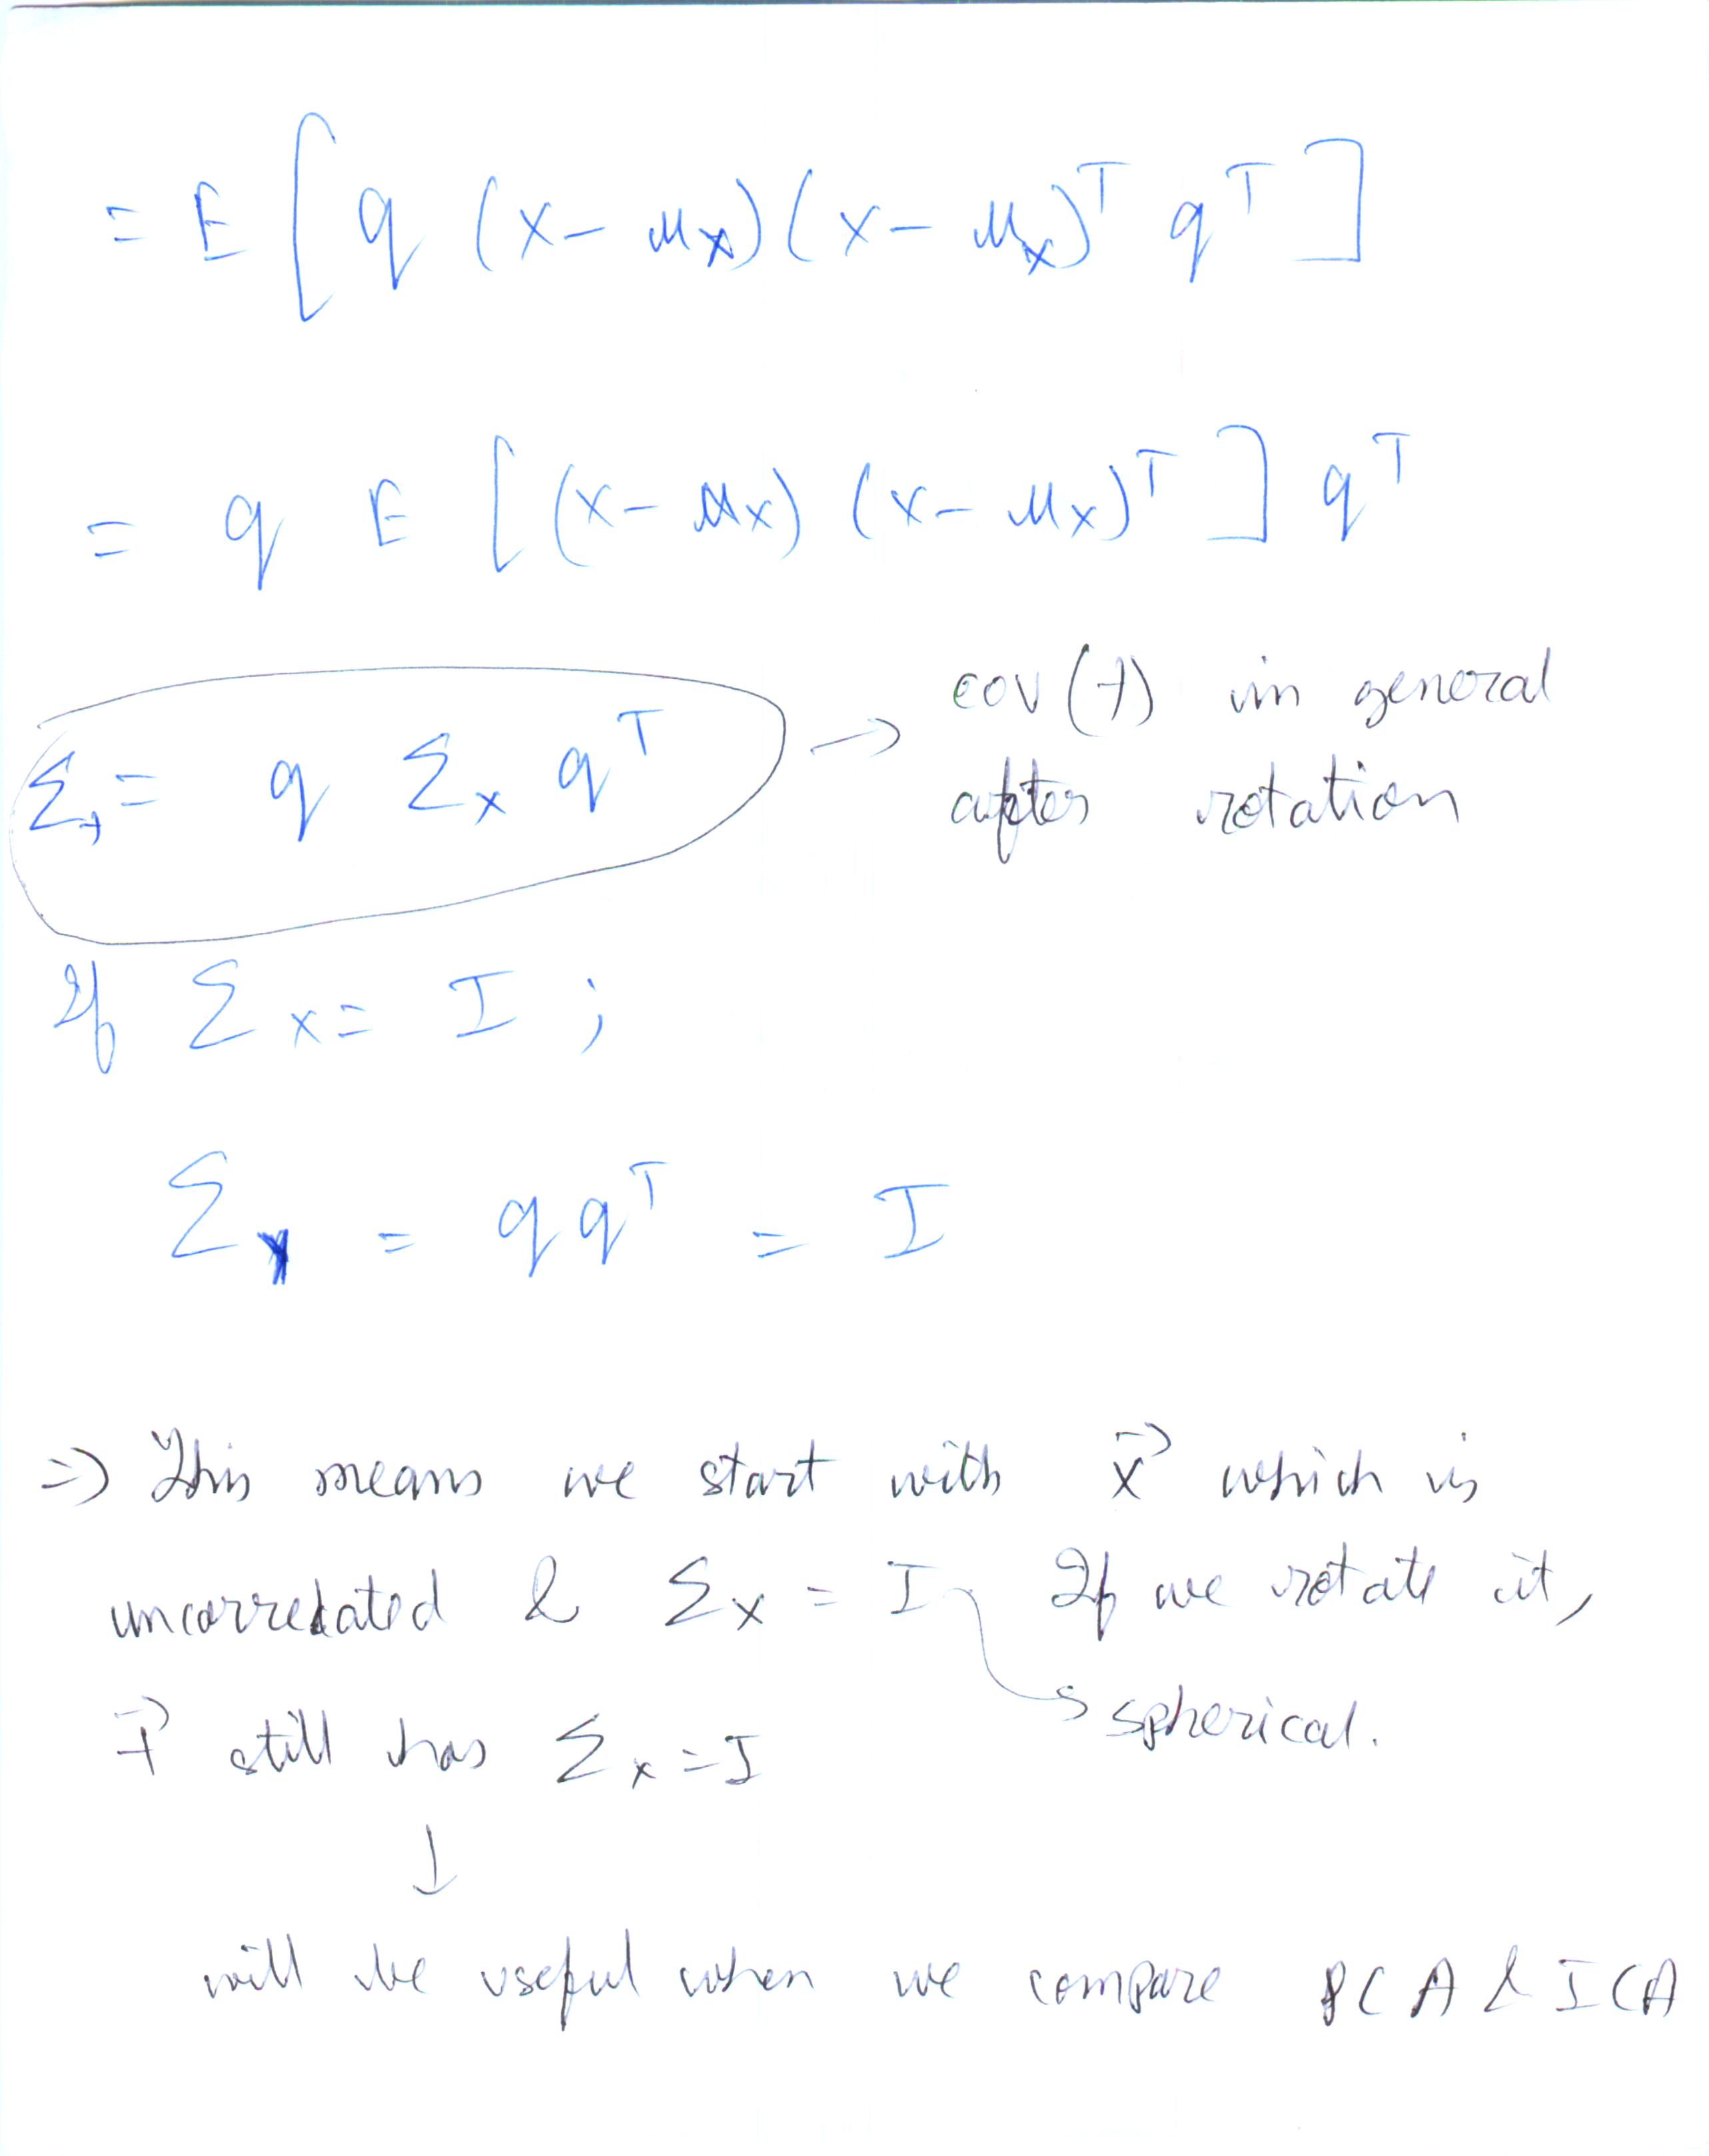 = E [ q (x - μx) (x - μx)ᵀ qᵀ ]
= q E [ (x - μx) (x - μx)ᵀ ] qᵀ
→ cov(y) in general
Σy = q Σx qᵀ
after rotation
If Σx = I ;
Σy = q qᵀ = I
⇒ This means we start with x⃗ which is
uncorrelated & Σx = I If we rotate it,
→ spherical.
y⃗ still has Σx = I
↓
will be useful when we compare PCA & ICA